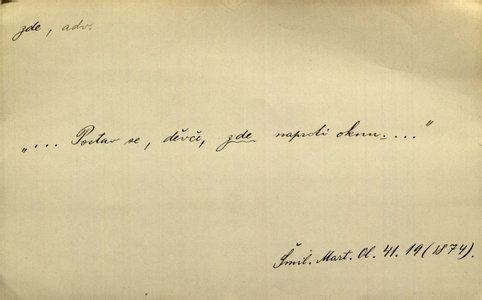 zde, adv.
„... Postav se, děvče, zde naproti oknu. ..."
Šmil. Mart. Ol. 41. 19 (1874).